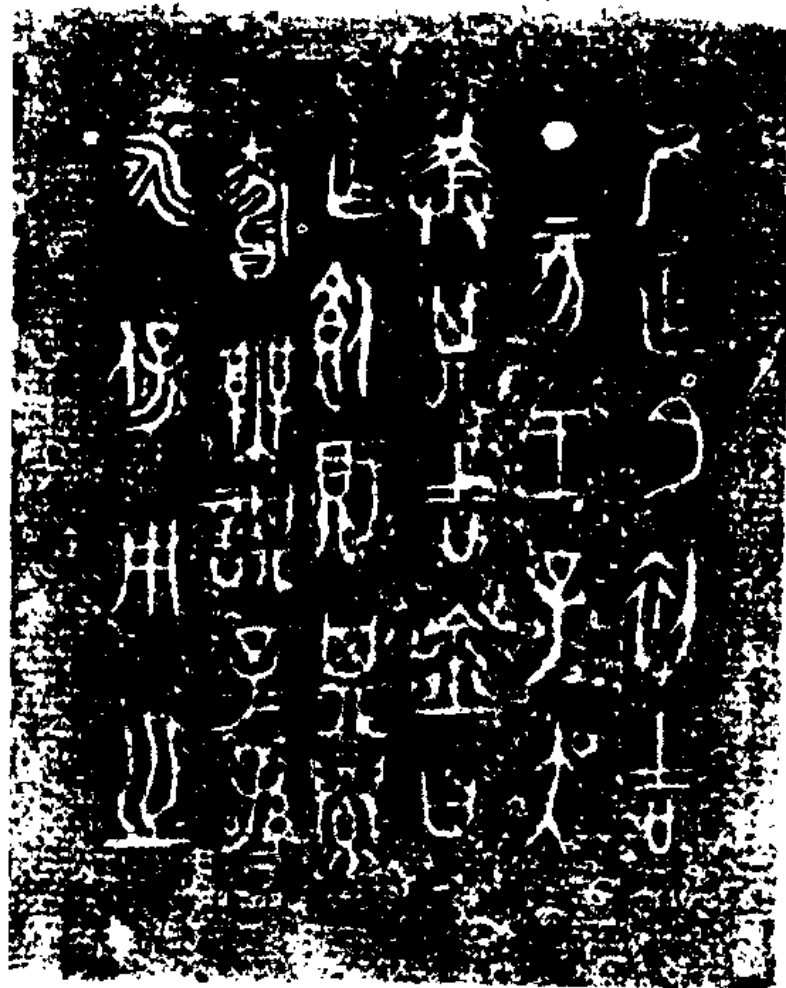 隹正月初吉
丁亥王子吳
擇其吉金自
乍飤鼾其眉
壽無諆子孫
永保用之